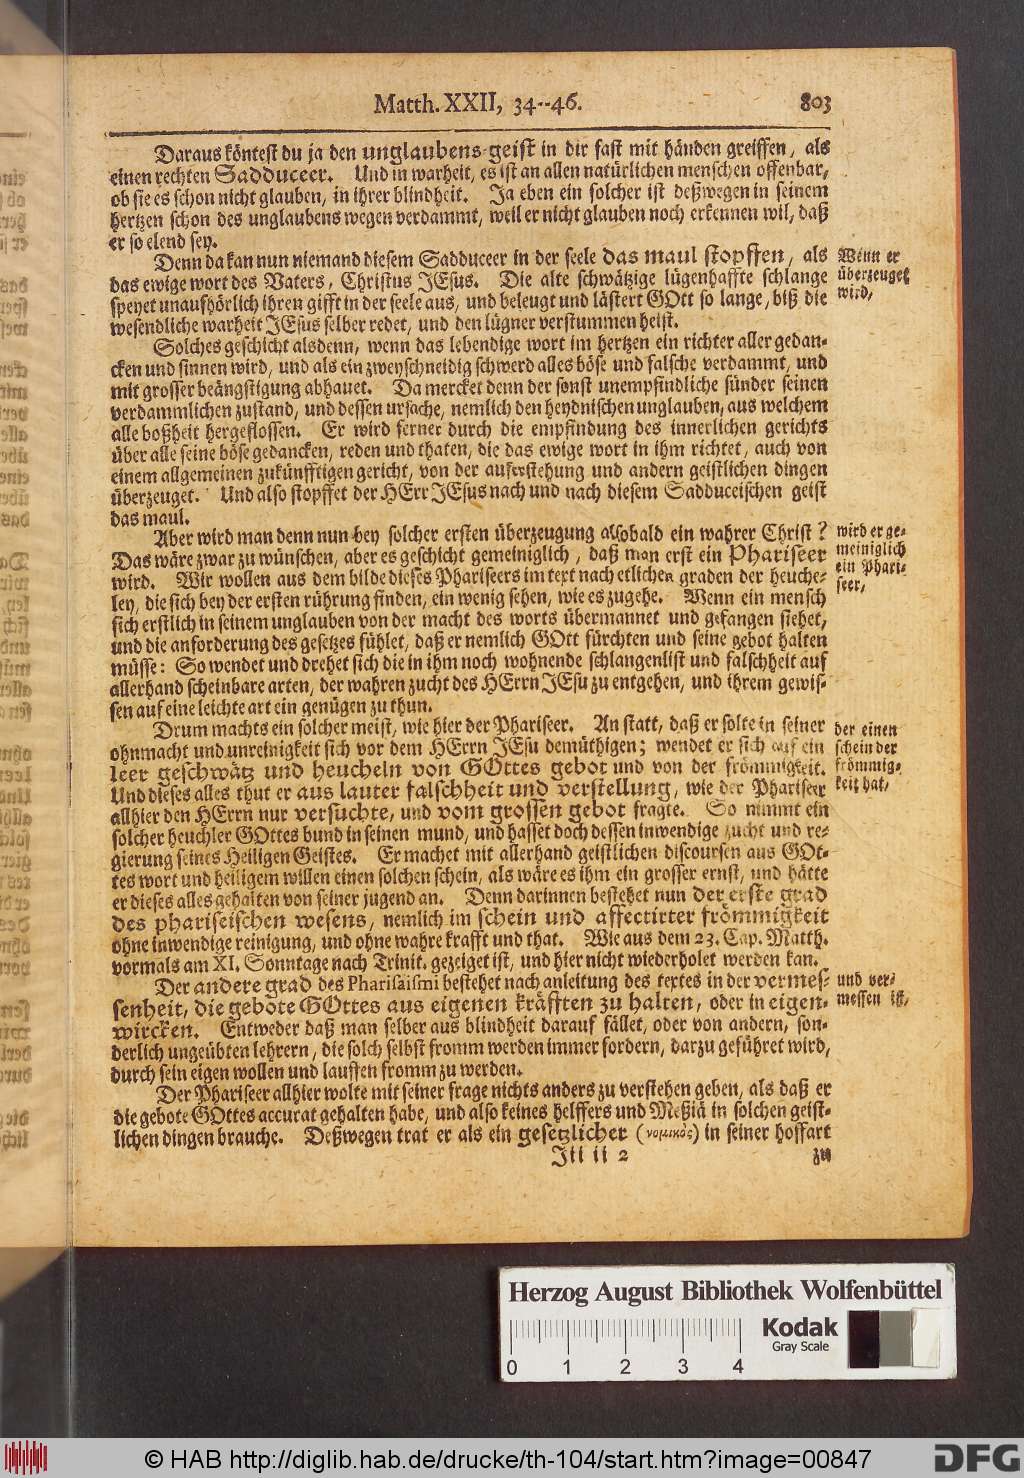 Matth. XXII, 34--46. 803
Daraus köntest du ja den unglaubens-geist in dir fast mit händen greiffen, als
einen rechten Sadduceer. Und in warheit, es ist an allen natürlichen menschen offenbar,
ob sie es schon nicht glauben, in ihrer blindheit. Ja eben ein solcher ist deßwegen in seinem
hertzen schon des unglaubens wegen verdammt, weil er nicht glauben noch erkennen wil, daß
er so elend sey.
Denn da kan nun niemand diesem Sadduceer in der seele das maul stopffen, als
das ewige wort des Vaters, Christus JEsus. Die alte schwätzige lügenhaffte schlange
speyet unaufhörlich ihren gifft in der seele aus, und beleugt und lästert GOtt so lange, biß die
wesendliche warheit JEsus selber redet, und den lügner verstummen heist.
Wenn er
überzeuget
wird,
Solches geschicht alsdenn, wenn das lebendige wort im hertzen ein richter aller gedan-
cken und sinnen wird, und als ein zweyschneidig schwerd alles böse und falsche verdammt, und
mit grosser beängstigung abhauet. Da mercket denn der sonst unempfindliche sünder seinen
verdammlichen zustand, und dessen ursache, nemlich den heydnischen unglauben, aus welchem
alle boßheit hergeflossen. Er wird ferner durch die empfindung des innerlichen gerichts
über alle seine böse gedancken, reden und thaten, die das ewige wort in ihm richtet, auch von
einem allgemeinen zukünfftigen gericht, von der auferstehung und andern geistlichen dingen
überzeuget. Und also stopffet der HErr JEsus nach und nach diesem Sadduceischen geist
das maul.
Aber wird man denn nun bey solcher ersten überzeugung alsobald ein wahrer Christ?
Das wäre zwar zu wünschen, aber es geschicht gemeiniglich, daß man erst ein Phariseer
wird. Wir wollen aus dem bilde dieses Phariseers im text nach etlichen graden der heuche-
ley, die sich bey der ersten rührung finden, ein wenig sehen, wie es zugehe. Wenn ein mensch
sich erstlich in seinem unglauben von der macht des worts übermannet und gefangen siehet,
und die anforderung des gesetzes fühlet, daß er nemlich GOtt fürchten und seine gebot halten
müsse: So wendet und drehet sich die in ihm noch wohnende schlangenlist und falschheit auf
allerhand scheinbare arten, der wahren zucht des HErrn JEsu zu entgehen, und ihrem gewis-
sen auf eine leichte art ein genügen zu thun.
wird er ge-
meiniglich
ein Phari-
seer,
Drum machts ein solcher meist, wie hier der Phariseer. An statt, daß er solte in seiner
ohnmacht und unreinigkeit sich vor dem HErrn JEsu demüthigen; wendet er sich auf ein
leer geschwätz und heucheln von GOttes gebot und von der frömmigkeit.
Und dieses alles thut er aus lauter falschheit und verstellung, wie der Phariseer
allhier den HErrn nur versuchte, und vom grossen gebot fragte. So nimmt ein
solcher heuchler GOttes bund in seinen mund, und hasset doch dessen inwendige zucht und re-
gierung seines Heiligen Geistes. Er machet mit allerhand geistlichen discoursen aus GOt-
tes wort und heiligem willen einen solchen schein, als wäre es ihm ein grosser ernst, und hätte
er dieses alles gehalten von seiner jugend an. Denn darinnen bestehet nun der erste grad
des phariseischen wesens, nemlich im schein und affectirter frömmigkeit
ohne inwendige reinigung, und ohne wahre krafft und that. Wie aus dem 23. Cap. Matth.
vormals am XI. Sonntage nach Trinit. gezeiget ist, und hier nicht wiederholet werden kan.
der einen
schein der
frömmig-
keit hat,
Der andere grad des Pharisaismi bestehet nach anleitung des textes in der vermes-
senheit, die gebote GOttes aus eigenen kräfften zu halten, oder in eigen-
wircken. Entweder daß man selber aus blindheit darauf fället, oder von andern, son-
derlich ungeübten lehrern, die solch selbst fromm werden immer fordern, darzu geführet wird,
durch sein eigen wollen und lauffen fromm zu werden.
und ver-
messen ist,
Der Phariseer allhier wolte mit seiner frage nichts anders zu verstehen geben, als daß er
die gebote GOttes accurat gehalten habe, und also keines helffers und Meßiä in solchen geist-
lichen dingen brauche. Deßwegen trat er als ein gesetzlicher (νομικὸς) in seiner hoffart
Jii ii 2 zu
Herzog August Bibliothek Wolfenbüttel
Kodak
Gray Scale
0 1 2 3 4
© HAB http://diglib.hab.de/drucke/th-104/start.htm?image=00847
DFG